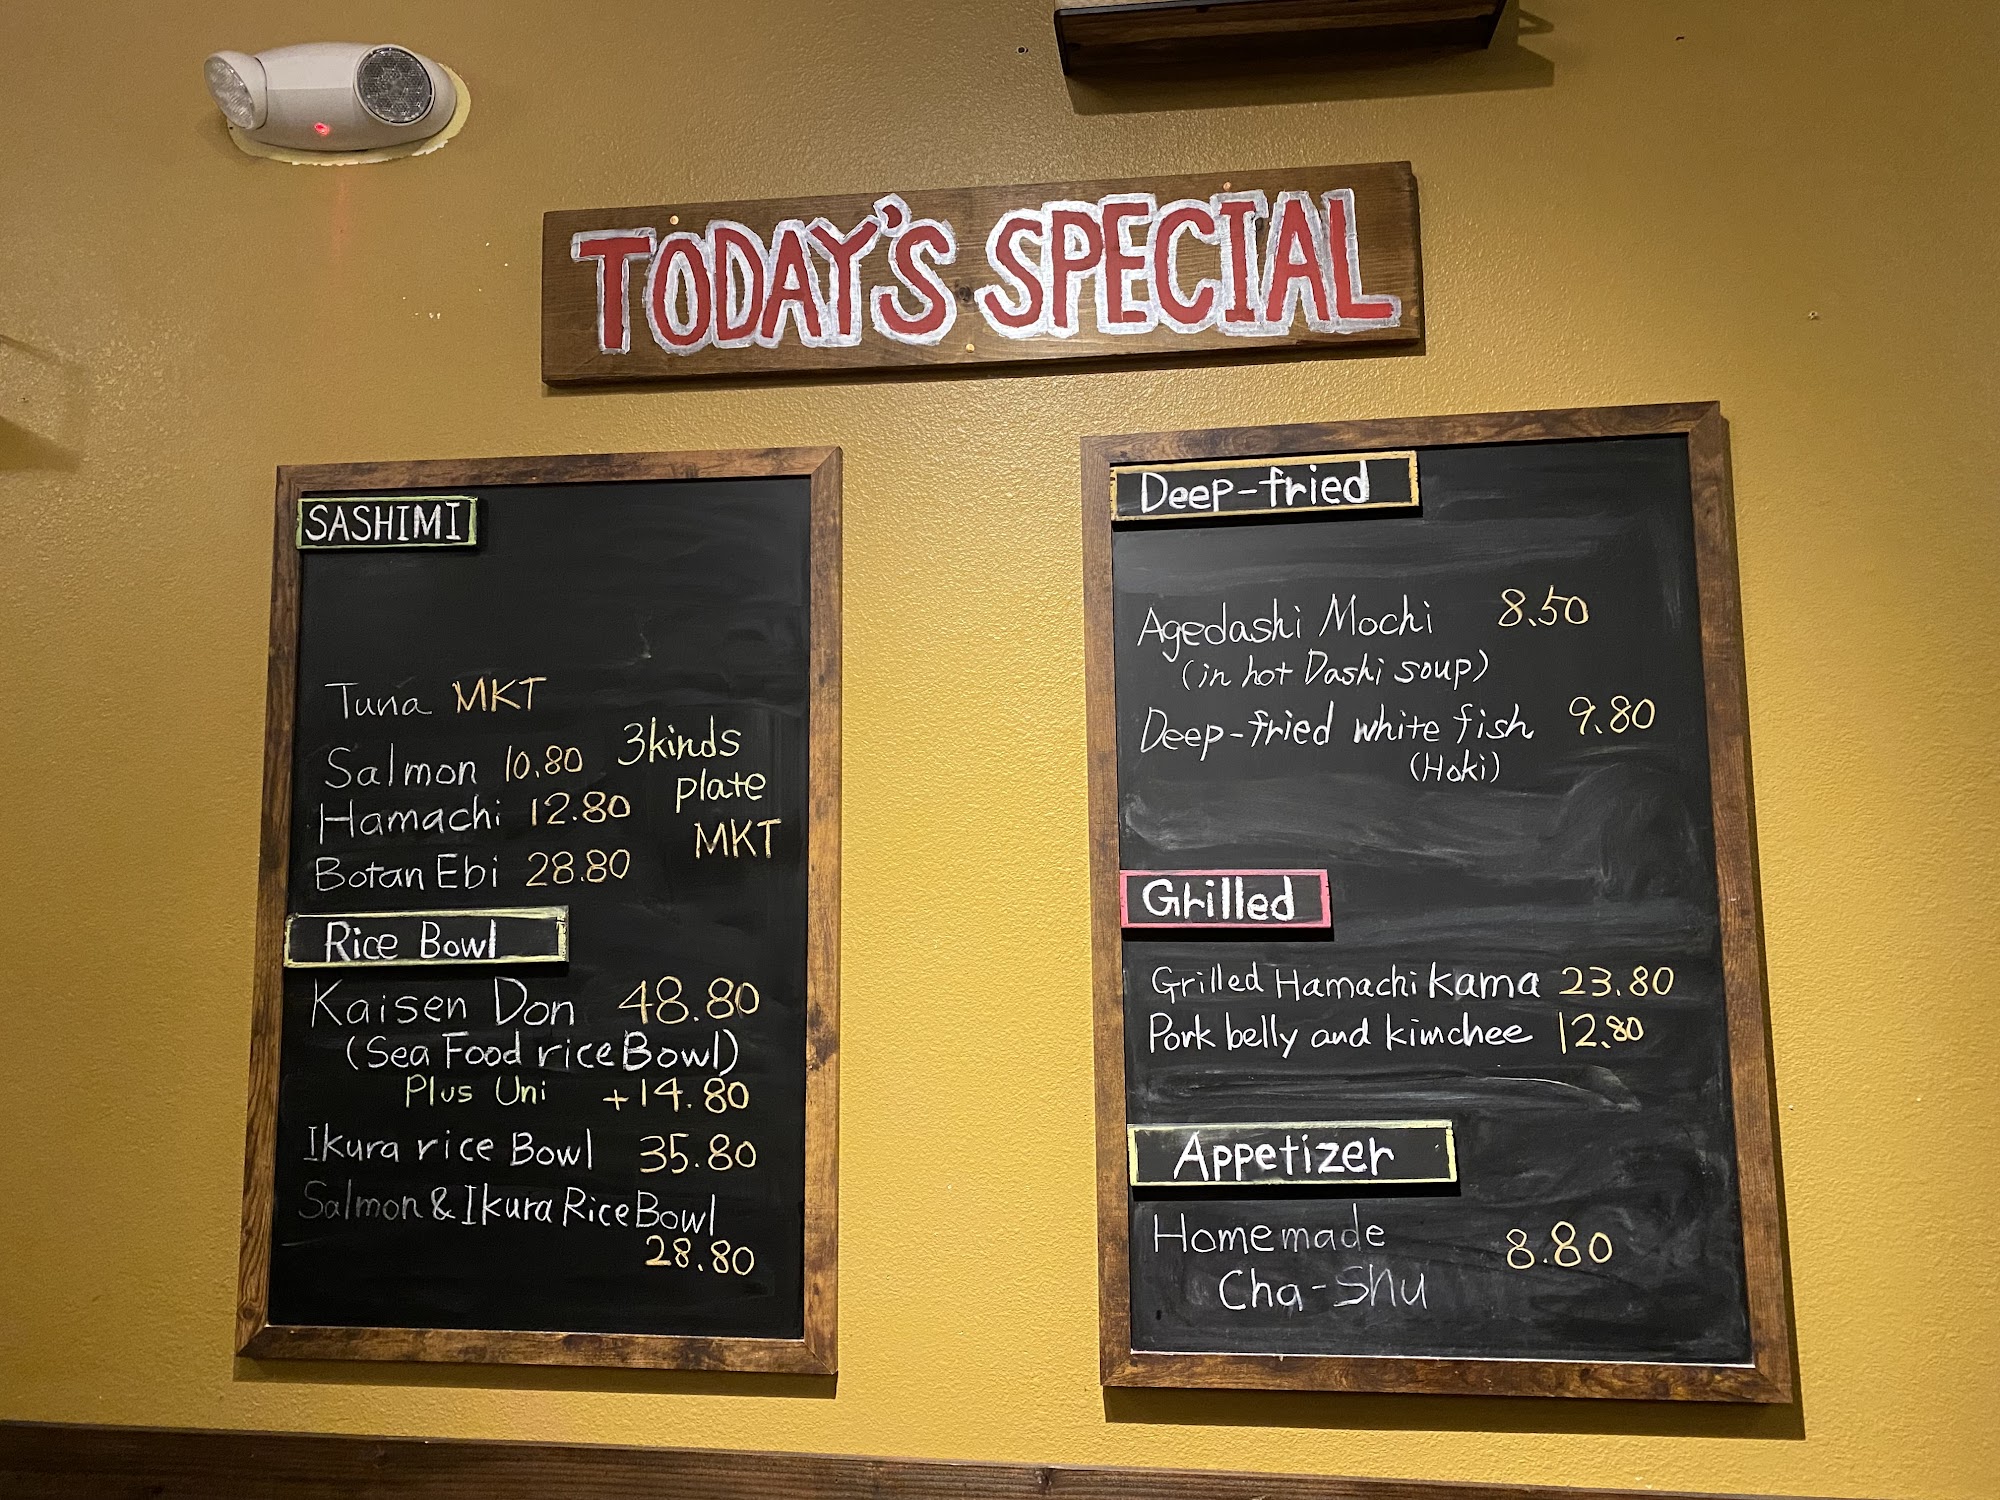 TODAY'S SPECIAL
SASHIMI
Tuna MKT
Salmon 10.80
Hamachi 12.80
Botan Ebi 28.80
3kinds
plate
MKT
Rice Bowl
Kaisen Don 48.80
(Sea Food rice Bowl)
Plus Uni +14.80
Ikura rice Bowl 35.80
Salmon & Ikura Rice Bowl
28.80
Deep-fried
Agedashi Mochi 8.50
(in hot Dashi soup)
Deep-fried white fish 9.80
(Hoki)
Grilled
Grilled Hamachi Kama 23.80
Pork belly and kimchee 12.80
Appetizer
Homemade 8.80
Cha-Shu